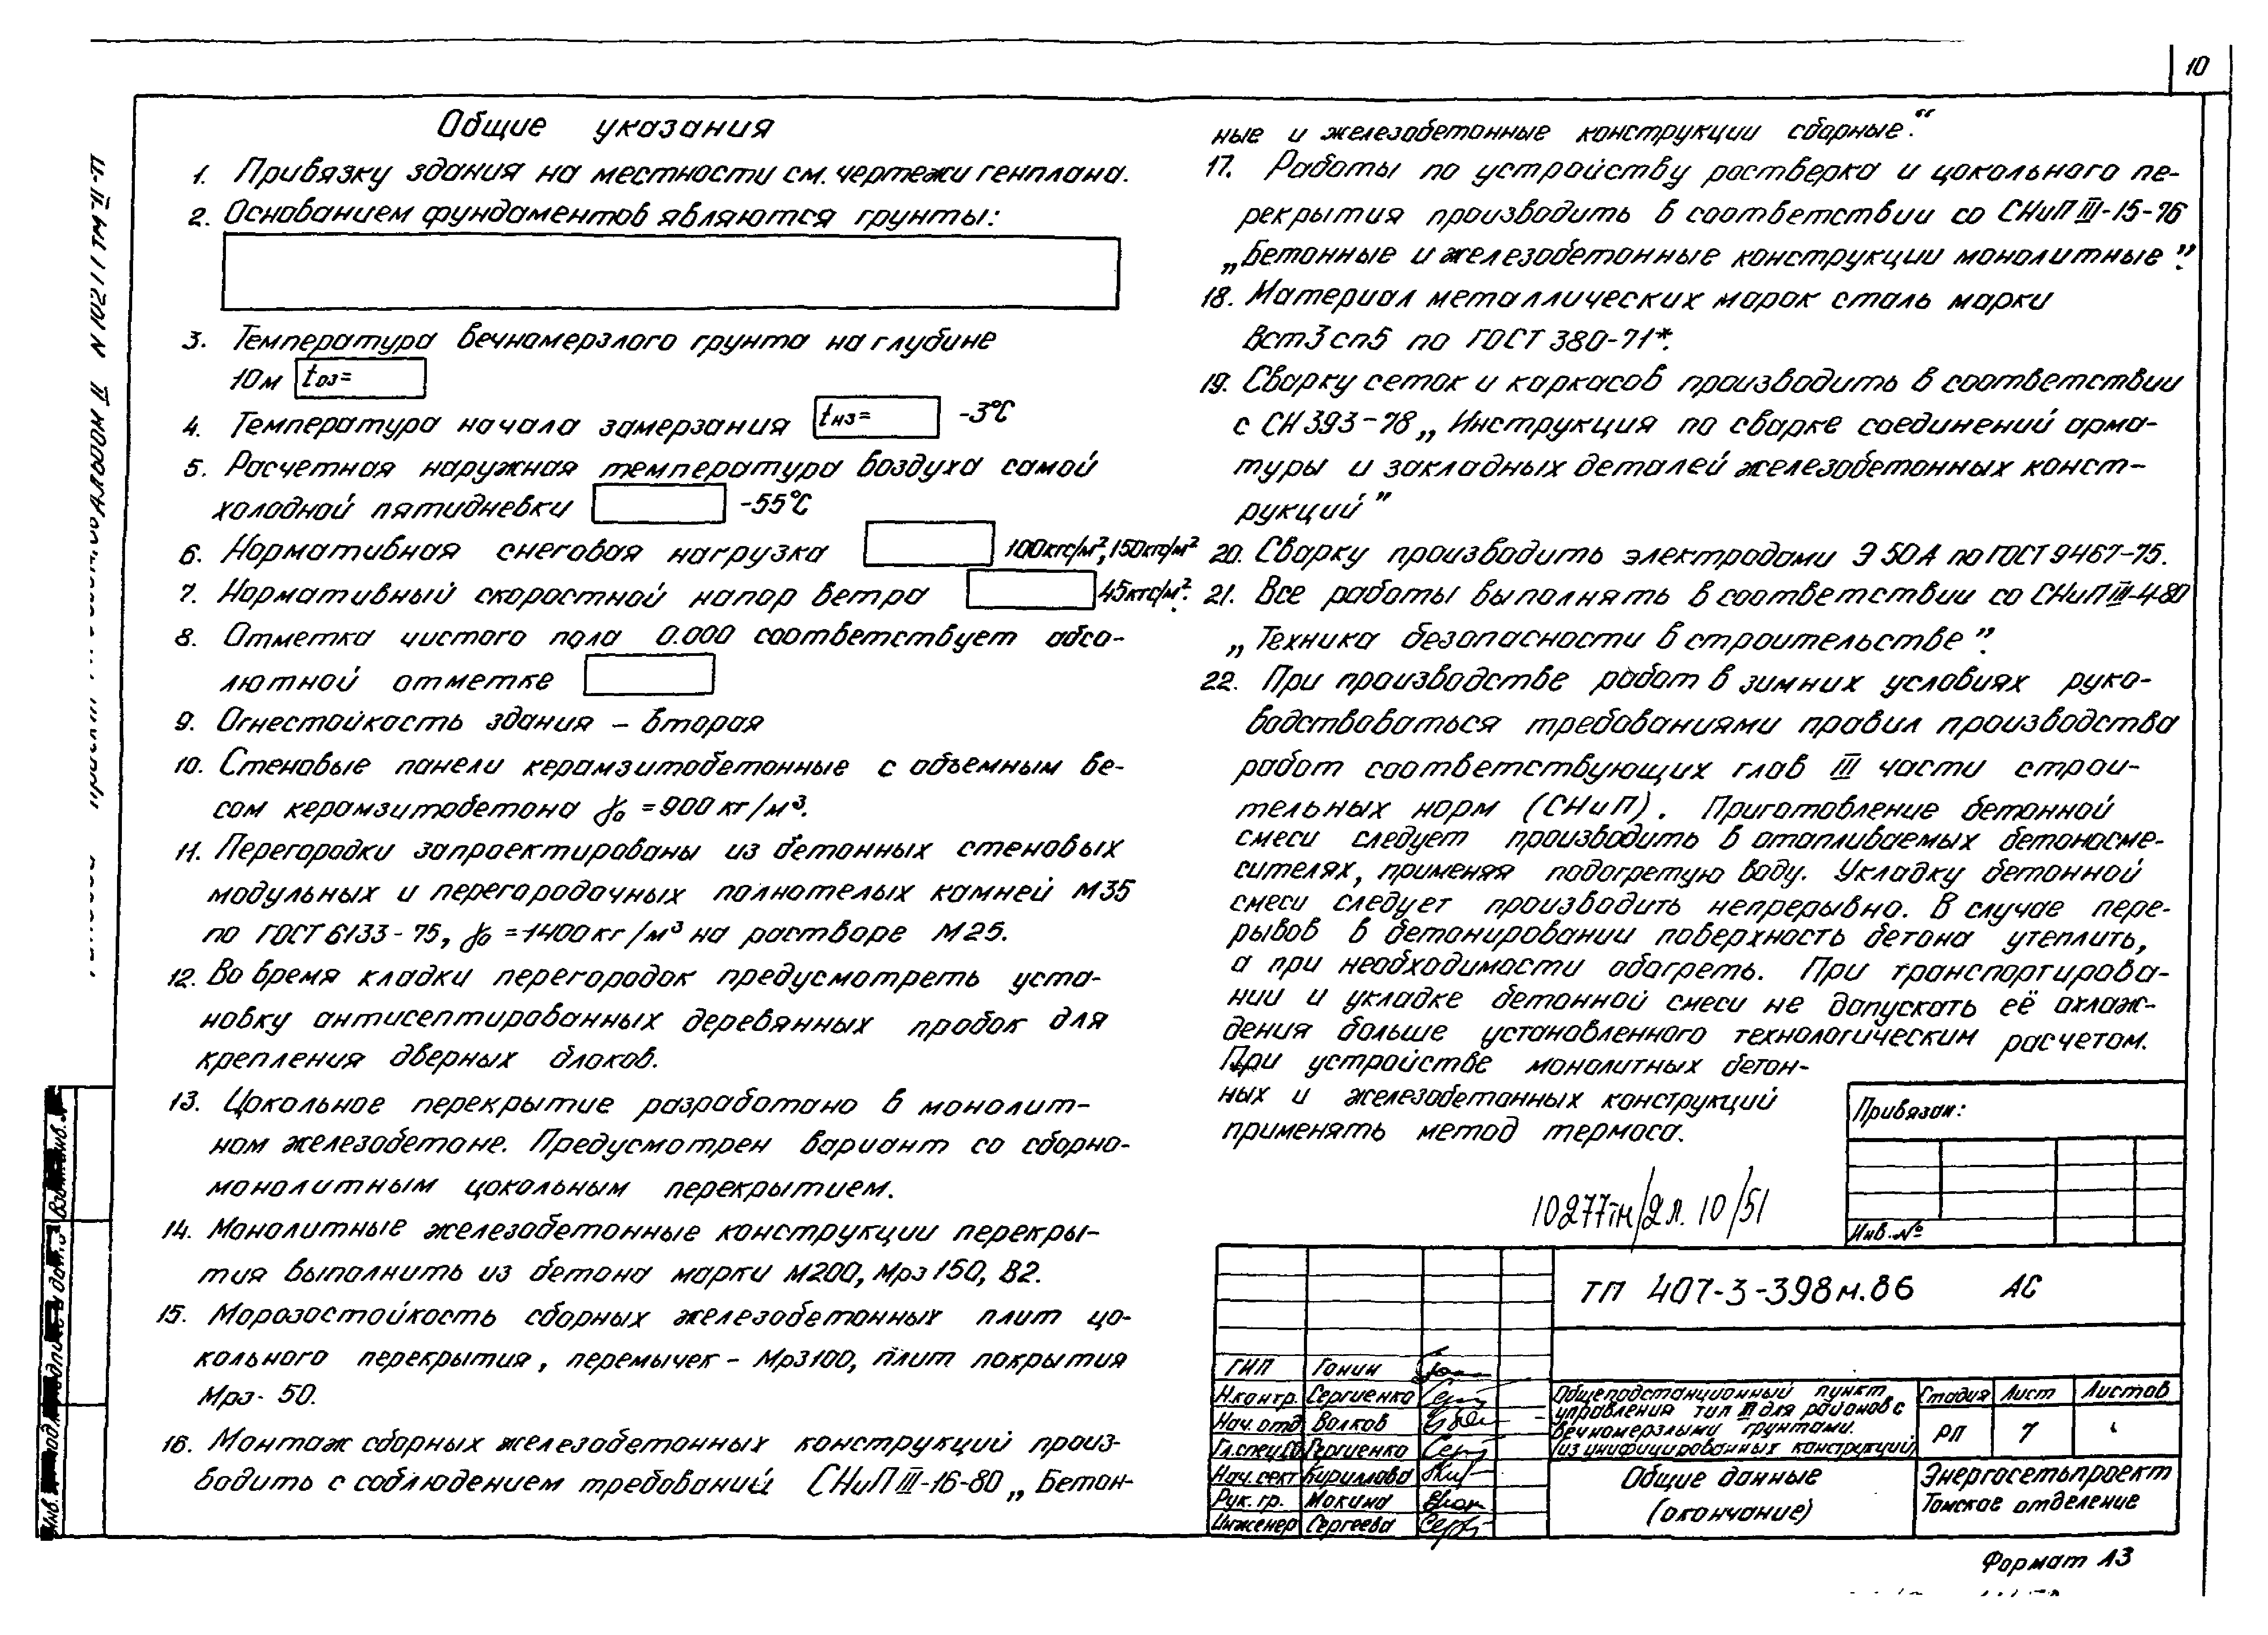 10
Общие указания
1. Привязку здания на местности см. чертежи генплана.
2. Основанием фундаментов являются грунты:
3. Температура вечномерзлого грунта на глубине
10м tоз=
4. Температура начала замерзания tнз= -3°С
5. Расчетная наружная температура воздуха самой
холодной пятидневки -55°С
6. Нормативная снеговая нагрузка 100кгс/м², 150кгс/м²
7. Нормативный скоростной напор ветра 45кгс/м².
8. Отметка чистого пола 0.000 соответствует абсо-
лютной отметке
9. Огнестойкость здания – вторая
10. Стеновые панели керамзитобетонные с объемным ве-
сом керамзитобетона γо = 900 кг/м³.
11. Перегородки запроектированы из бетонных стеновых
модульных и перегородочных полнотелых камней М35
по ГОСТ 6133-75, γо = 1400 кг/м³ на растворе М25.
12. Во время кладки перегородок предусмотреть уста-
новку антисептированных деревянных пробок для
крепления дверных блоков.
13. Цокольное перекрытие разработано в монолит-
ном железобетоне. Предусмотрен вариант со сборно-
монолитным цокольным перекрытием.
14. Монолитные железобетонные конструкции перекры-
тия выполнить из бетона марки М200, Мрз 150, В2.
15. Морозостойкость сборных железобетонных плит цо-
кольного перекрытия, перемычек – Мрз100, плит покрытия
Мрз- 50.
16. Монтаж сборных железобетонных конструкций произ-
водить с соблюдением требований СНиП III-16-80 „Бетон-
ные и железобетонные конструкции сборные."
17. Работы по устройству ростверка и цокольного пе-
рекрытия производить в соответствии со СНиП III-15-76
„Бетонные и железобетонные конструкции монолитные".
18. Материал металлических марок сталь марки
Вст3сп5 по ГОСТ 380-71*.
19. Сварку сеток и каркасов производить в соответствии
с СН 393-78 „Инструкция по сварке соединений арма-
туры и закладных деталей железобетонных конст-
рукций"
20. Сварку производить электродами Э 50А по ГОСТ 9467-75.
21. Все работы выполнять в соответствии со СНиП III-4-80
„Техника безопасности в строительстве".
22. При производстве работ в зимних условиях руко-
водствоваться требованиями правил производства
работ соответствующих глав III части строи-
тельных норм (СНиП). Приготовление бетонной
смеси следует производить в отапливаемых бетоносме-
сителях, применяя подогретую воду. Укладку бетонной
смеси следует производить непрерывно. В случае пере-
рывов в бетонировании поверхность бетона утеплить,
а при необходимости обогреть. При транспортирова-
нии и укладке бетонной смеси не допускать её охлаж-
дения больше установленного технологическим расчетом.
При устройстве монолитных бетон-
ных и железобетонных конструкций
применять метод термоса.
10277тм/2 л. 10/51
Привязан:
Инв. №
ТП 407-3-398м.86 АС
ГИП Гонин
Н.контр. Сергиенко
Нач. отд Волков
Гл.спец.СО Сергиенко
Нач. сект Кириллова
Рук. гр. Мокина
Инженер Сергеева
Общеподстанционный пункт
управления тип III для районов с
вечномерзлыми грунтами.
(из унифицированных конструкций)
Стадия Лист Листов
РП 7
Общие данные
(окончание)
Энергосетьпроект
Томское отделение
Формат А3